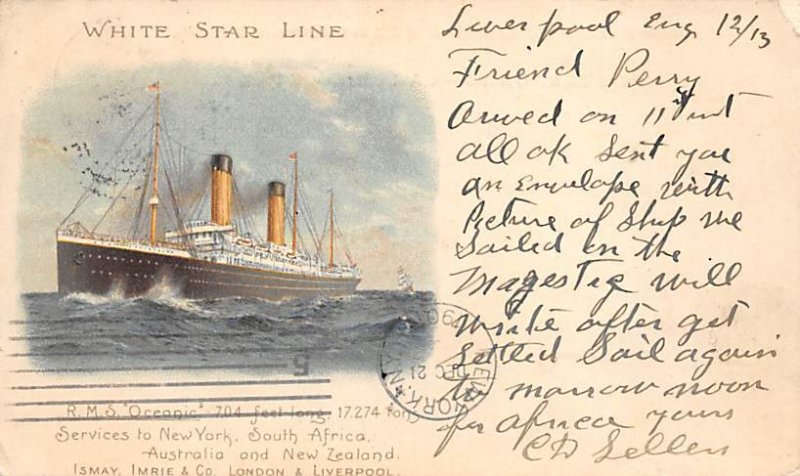 WHITE STAR LINE
R.M.S. "Oceanic" 704 feet long, 17,274 tons
Services to New York, South Africa,
Australia and New Zealand.
ISMAY, IMRIE & Co. LONDON & LIVERPOOL.
NEW YORK, N.Y.
DEC 21
Liverpool Eng 12/13
Friend Perry
Arived on 11 inst
all ok Sent you
an Envelope with
Picture of Ship we
Sailed in the
Magestic will
write after get
Settled Sail again
to morrow noon
for Africa yours
CD Sellers